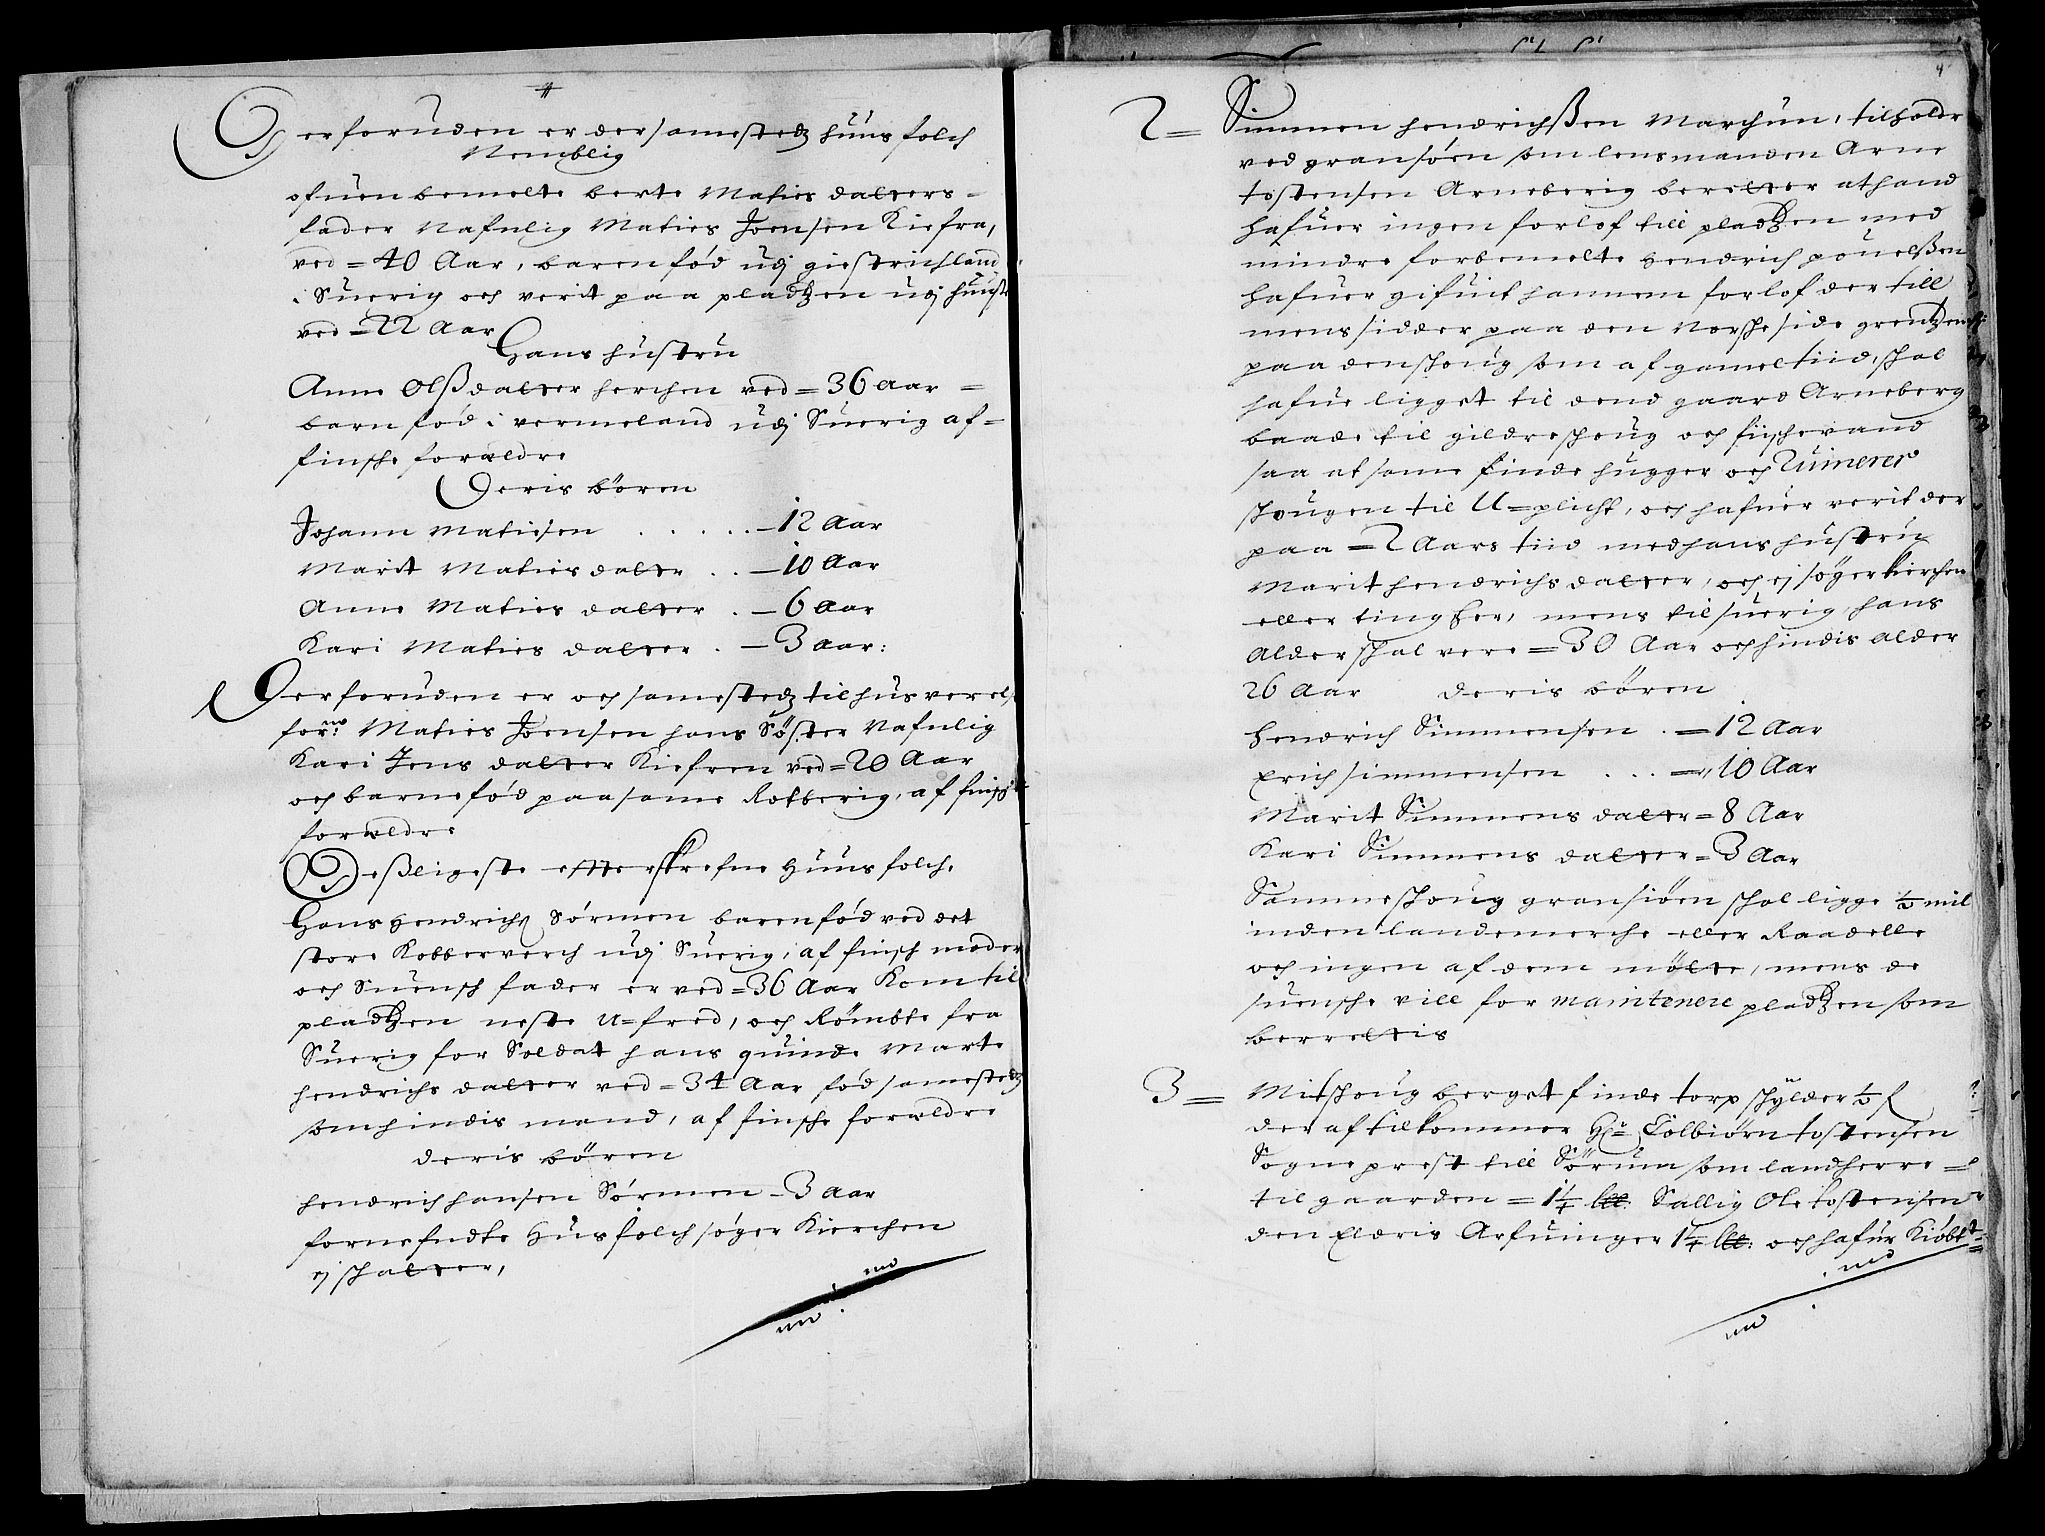 Derforuden er dersamestedz huusfolch
Nemblig
ofuenbemelte berte Maties datters
fader Nafnlig Maties Joensen Kiefra,
ved = 40 Aar, barenfød udj giestrichland
i Suerig och verit paa pladtzen udj
ved = 22 Aar
Hans hustru
Anne Olßdatter herchen ved = 36 aar =
barnfød i vermeland udj Suerig af =
finsche forældre
Deris børen
Johann Matiesen . . . . . – 12 Aar
Marit Maties datter . . – 10 Aar
Anne Maties datter . – 6 Aar
Kari Maties datter . – 3 aar:
Derforuden er och samestedz tilhus
forne: Maties Joensen hans Søster Nafnlig
Kari Jens datter Kiefren ved = 20 Aar
och barnefød paa same Rotberig, af finsche
forældre
Deßligeste efterskrefne Huusfolch.
Hans Hendrichs Sørmen barenfød ved det
store Kobberverch udj Suerig, af finsch moder
och Suensch fader er ved = 36 Aar Kom til
pladtzen neste U=fred, och Rømbte fra
Suerig for Soldat hans quinde Marte
hendrichs datter ved = 34 Aar fød samestedz
som hindis mand, af finsche forældre
deris børen
hendrich hansen Sørmen – 3 aar
fornefndte Husfolch søger Kierchen
ej schatter,
2 = Simmen hendrichßen Marchun, tilholder
ved gransøen som lensmanden Arne
tostensen Arneberig beretter at hand
hafuer ingen forlof till pladtzen med
mindre forbemelte Hendrich pouelßen
hafuer gifuit hannem forlof der till
mens sidder paa den Norsche side grendtzen
paa den schoug som af gamel tiid, schal
hafue ligget til dend gaard Arneberg
baade til gildreschoug och fischevand
saa at same finde hugger och Ruinerer
schougen til U=plicht, och hafuer verit der
paa = 2 Aars tiid med hans hustru
Marit hendrichs datter, och ej søger kierchen
eller ting her, mens til suerig, hans
Alder schal vere = 30 Aar och hindis alder
26 Aar deris børen
Hendrich Simmensen . = 12 Aar
Erich simmensen . . . = 10 Aar
Marit Simmens datter = 8 Aar
Kari Simmens datter = 3 Aar
Samme schoug gransiøen schal ligge ½ mil
inden landemerche eller Raadelle
och ingen af dem mølte, mens de
suensche vill for maintenere pladtzen som
berrettis
3 = Mitschougberget finde torp schylder ½ ſ
der af tilkommer Hr: Colbiørn tostensen
Sogneprest till Sørum som landherre =
til gaarden = 1¼ Sallig Ole tostensen
den Elderis Arfuinger 1¼ och hafur Kiøbt